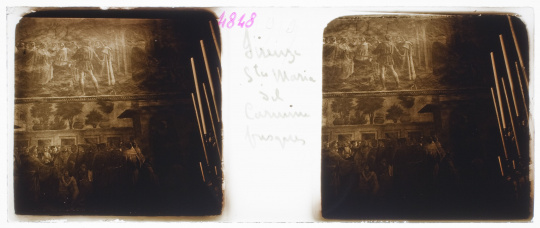 4848
Firenze
Sta Maria
del
Carmine